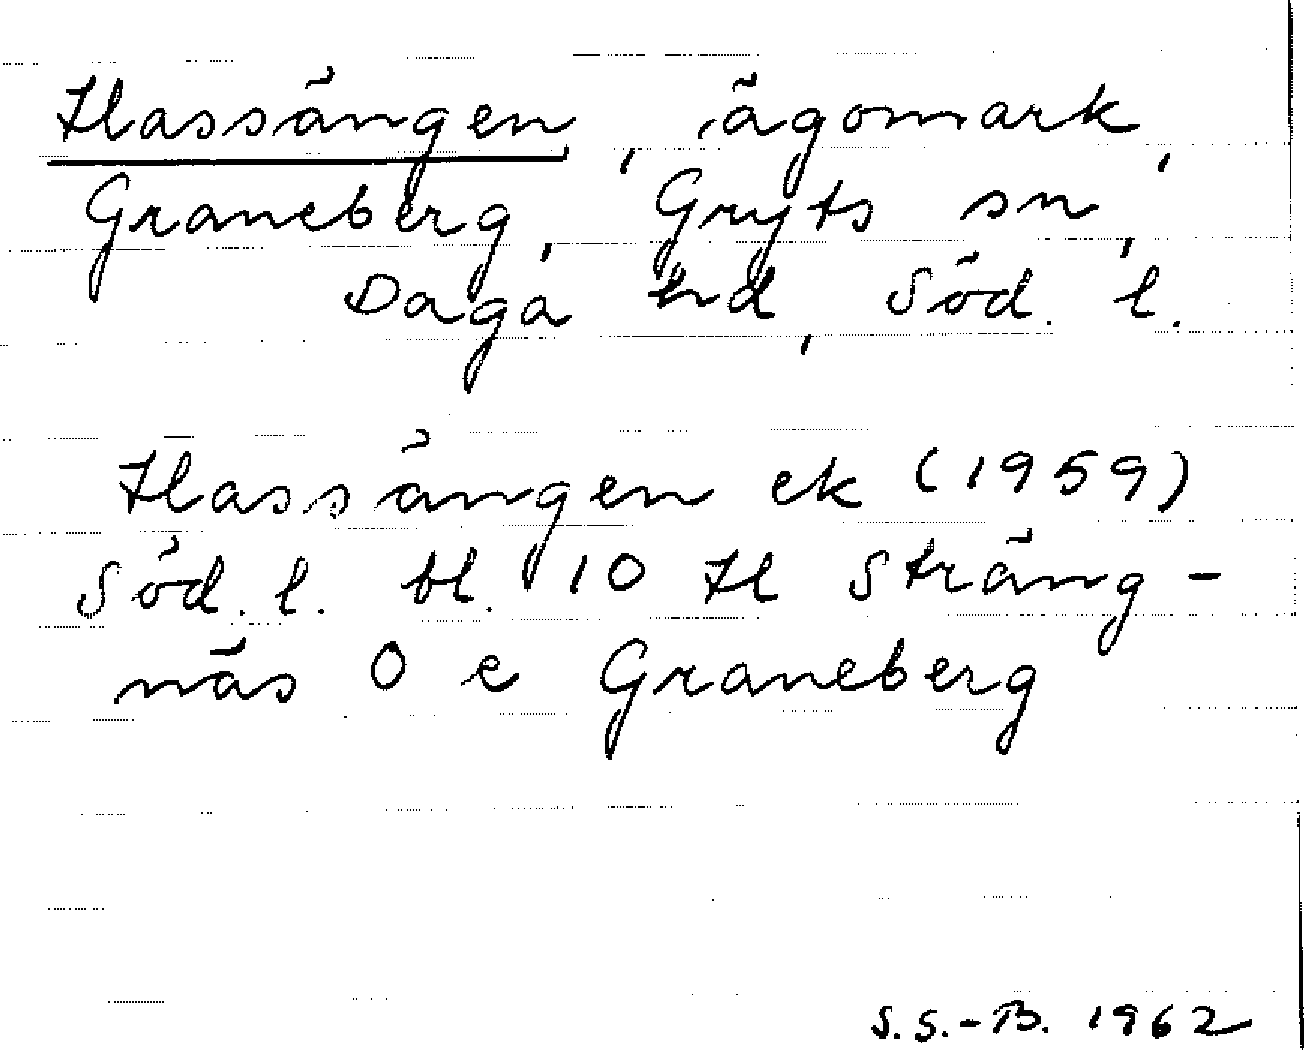 Hassängen, ägomark,
Graneberg, Gryts sn,
Daga hd, Söd. l.
Hassängen ek (1959)
Söd. l. bl. 10 H Sträng-
näs O e Graneberg
S.S.-B. 1962